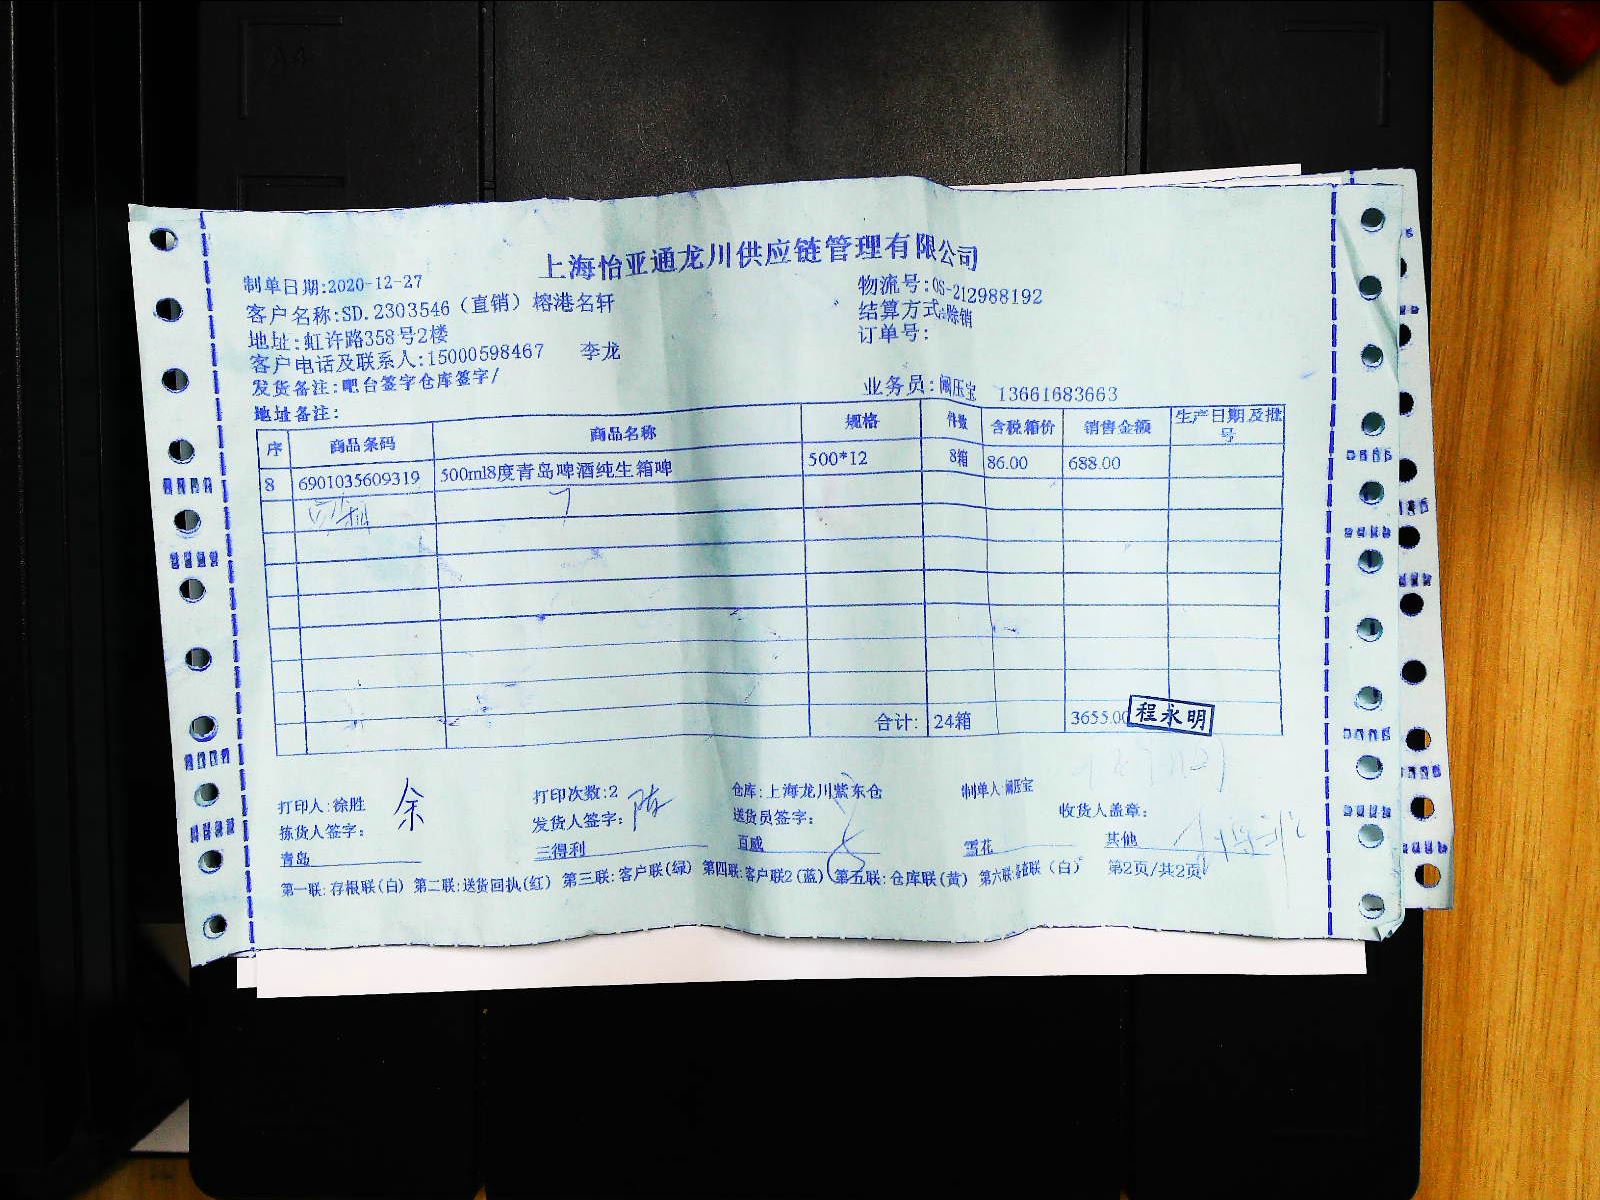 上海怡亚通龙川供应链管理有限公司
制单日期:2020-12-27
物流号:OS-212988192
客户名称:SD.2303546（直销）榕港名轩
结算方式:赊销
地址:虹许路358号2楼
订单号:
客户电话及联系人:15000598467 李龙
发货备注:吧台签字仓库签字/
业务员:阚压宝 13661683663
地址备注:
序 商品条码 商品名称 规格 件数 含税箱价 销售金额 生产日期及批号
8 6901035609319 500ml8度青岛啤酒纯生箱啤 500*12 8箱 86.00 688.00
合计: 24箱 3655.00
程永明
打印人:徐胜 打印次数:2 仓库:上海龙川紫东仓 制单人:阚压宝
拣货人签字: 余 发货人签字: 陈 送货员签字: 收货人盖章:
青岛 三得利 百威 雪花 其他
第一联:存根联(白) 第二联:送货回执(红) 第三联:客户联(绿) 第四联:客户联2(蓝) 第五联:仓库联(黄) 第六联: 联（白） 第2页/共2页